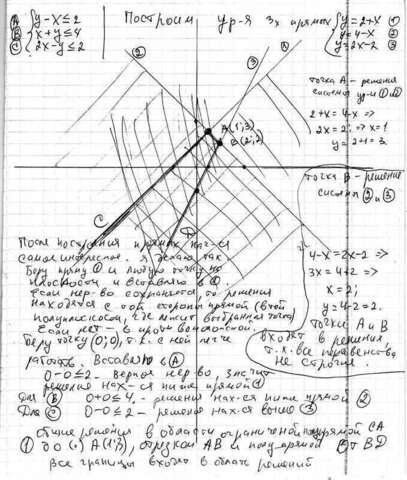 A { y-x≤2
B { x+y≤4
C { 2x-y≤2
Построим ур-я 3х прямых
{ y=2+x ①
y=4-x ②
y=2x-2 ③
② ③
точка A - решения
системы ур-й ① и ②
2+x=4-x =>
2x=2; => x=1
y=2+1=3.
A(1;3)
B(2;2)
точка B - решение
системы ② и ③
4-x=2x-2 =>
3x=4+2 =>
x=2;
y=4-2=2.
Точки A и B
входят в решения,
т.к. все неравенства
не строгие.
C
D
После построения прямых нач-ся
самое интересное. Я делаю так.
Беру прямую ① и любую точку на
плоскости и вставляю в
Если нер-во сохраняется, то решения
находятся с той стороны прямой (в той
полуплоскости, где лежит выбранная точка)
Если нет - в противоположной.
Беру точку (0;0), т.к. с ней легче
работать. Вставляю в A
0-0≤2 - верное нер-во, значит
решение нах-ся ниже прямой 1
Для B 0+0≤4, - решения нах-ся ниже прямой ②
Для C 0-0≤2 - решение нах-ся выше ③
общие решения в области ограниченной полупрямой CA
① до (•) A(1;3), отрезком AB и полупрямой от BD
все границы входят в область решений